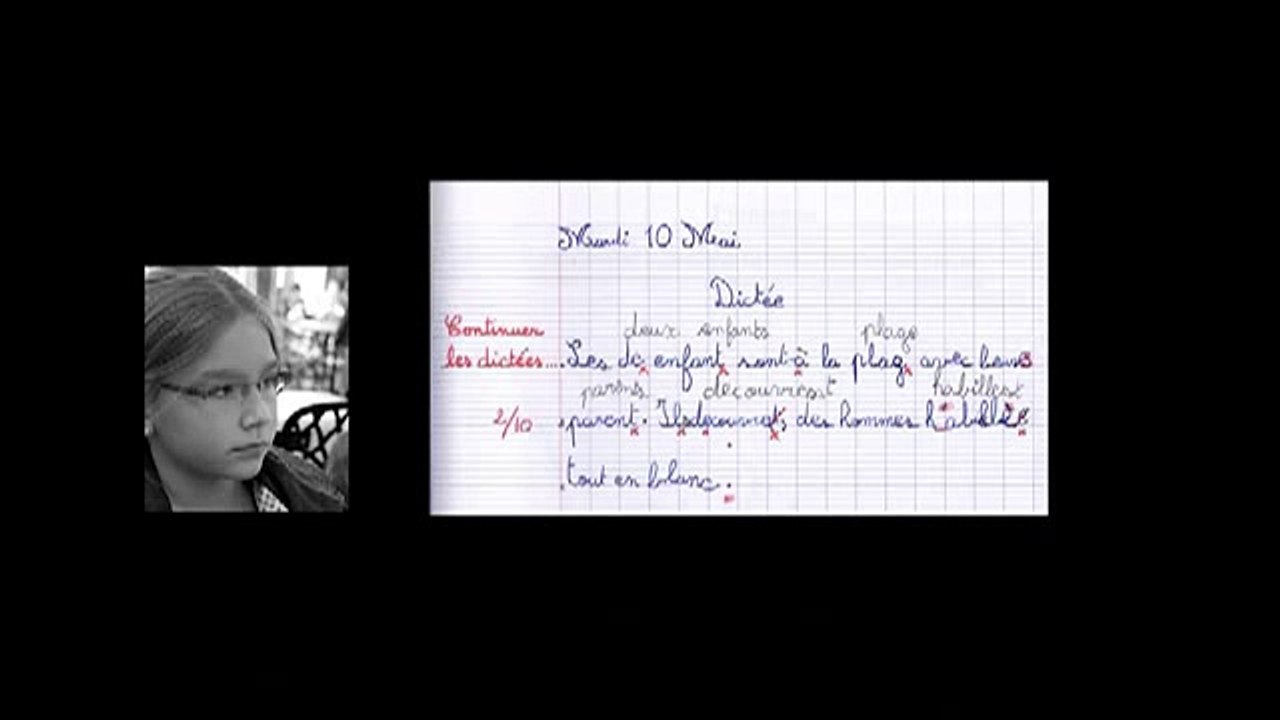 Mardi 10 Mai
Dictée
Continuer
deux enfants plage
les dictées.... Les de enfant sont à la plag avec leurs
parens découvrent habillés
2/10
parent. Ils des hommes habillé
tout en blanc.